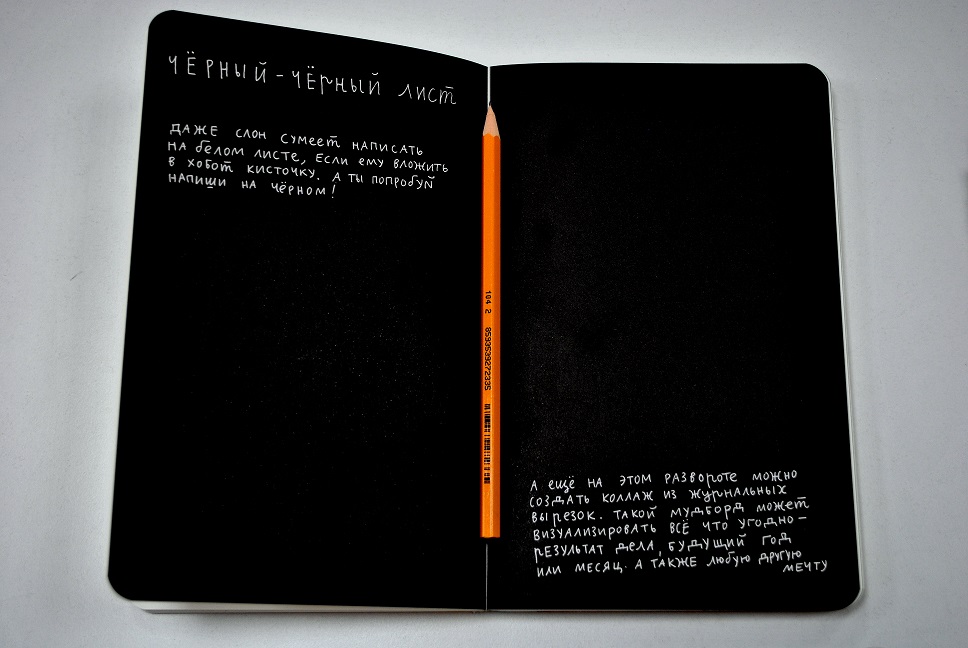 ЧЁРНЫЙ-ЧЁРНЫЙ ЛИСТ
ДАЖЕ СЛОН СУМЕЕТ НАПИСАТЬ
НА БЕЛОМ ЛИСТЕ, ЕСЛИ ЕМУ ВЛОЖИТЬ
В ХОБОТ КИСТОЧКУ. А ТЫ ПОПРОБУЙ
НАПИШИ НА ЧЁРНОМ!
104 2 8593539272335
А ЕЩЁ НА ЭТОМ РАЗВОРОТЕ МОЖНО
СОЗДАТЬ КОЛЛАЖ ИЗ ЖУРНАЛЬНЫХ
ВЫРЕЗОК. ТАКОЙ МУДБОРД МОЖЕТ
ВИЗУАЛИЗИРОВАТЬ ВСЁ ЧТО УГОДНО –
РЕЗУЛЬТАТ ДЕЛА, БУДУЩИЙ ГОД
ИЛИ МЕСЯЦ. А ТАКЖЕ ЛЮБУЮ ДРУГУЮ
МЕЧТУ